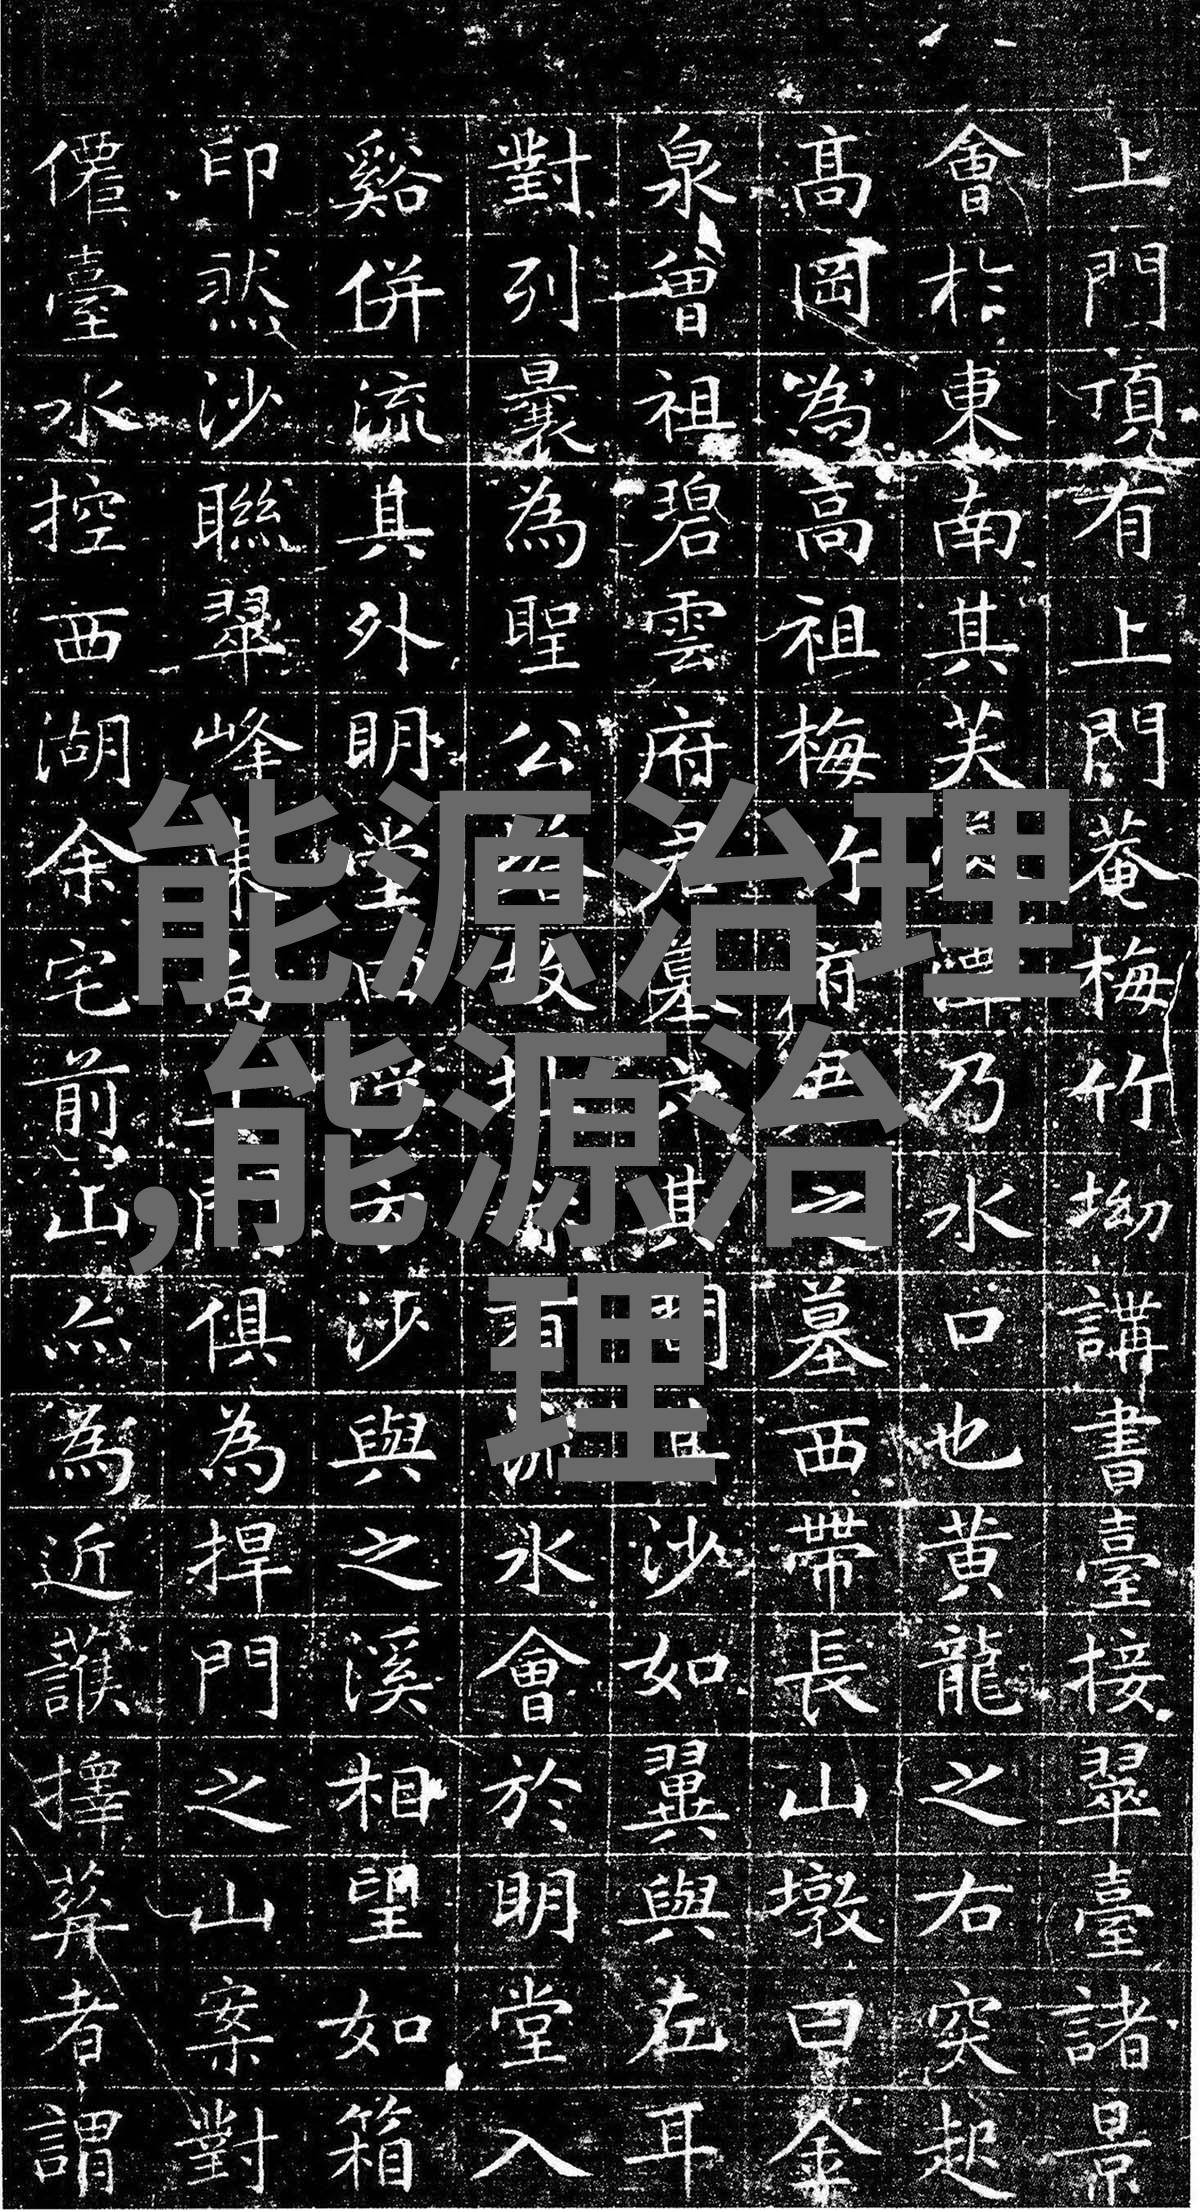 上門頂有上門菴梅竹坳講書臺接翠臺諸景
會扵東南其芙潭乃水口也黄龍之右突起
髙岡為高祖梅竹府君之墓西帶長山墩曰金
泉曾祖碧雲府君墓其間沙如翼與左耳
對列曩為聖公塔故址有流水會於明堂入
谿併流其外明堂沙與之溪相望如箱
印然沙聯翠峰東俱為捍門之山案對
僊臺水控西湖余宅前山亦為近護擇葬者謂
能源治理
,能源治
理